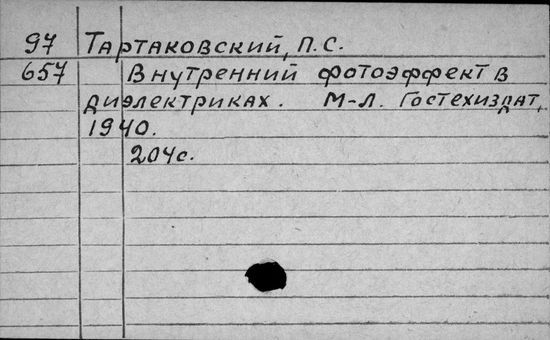 97 Тартаковский, П.С.
657 Внутренний фотоэффект в
диэлектриках. М-Л. Гостехиздат,
1940.
204с.